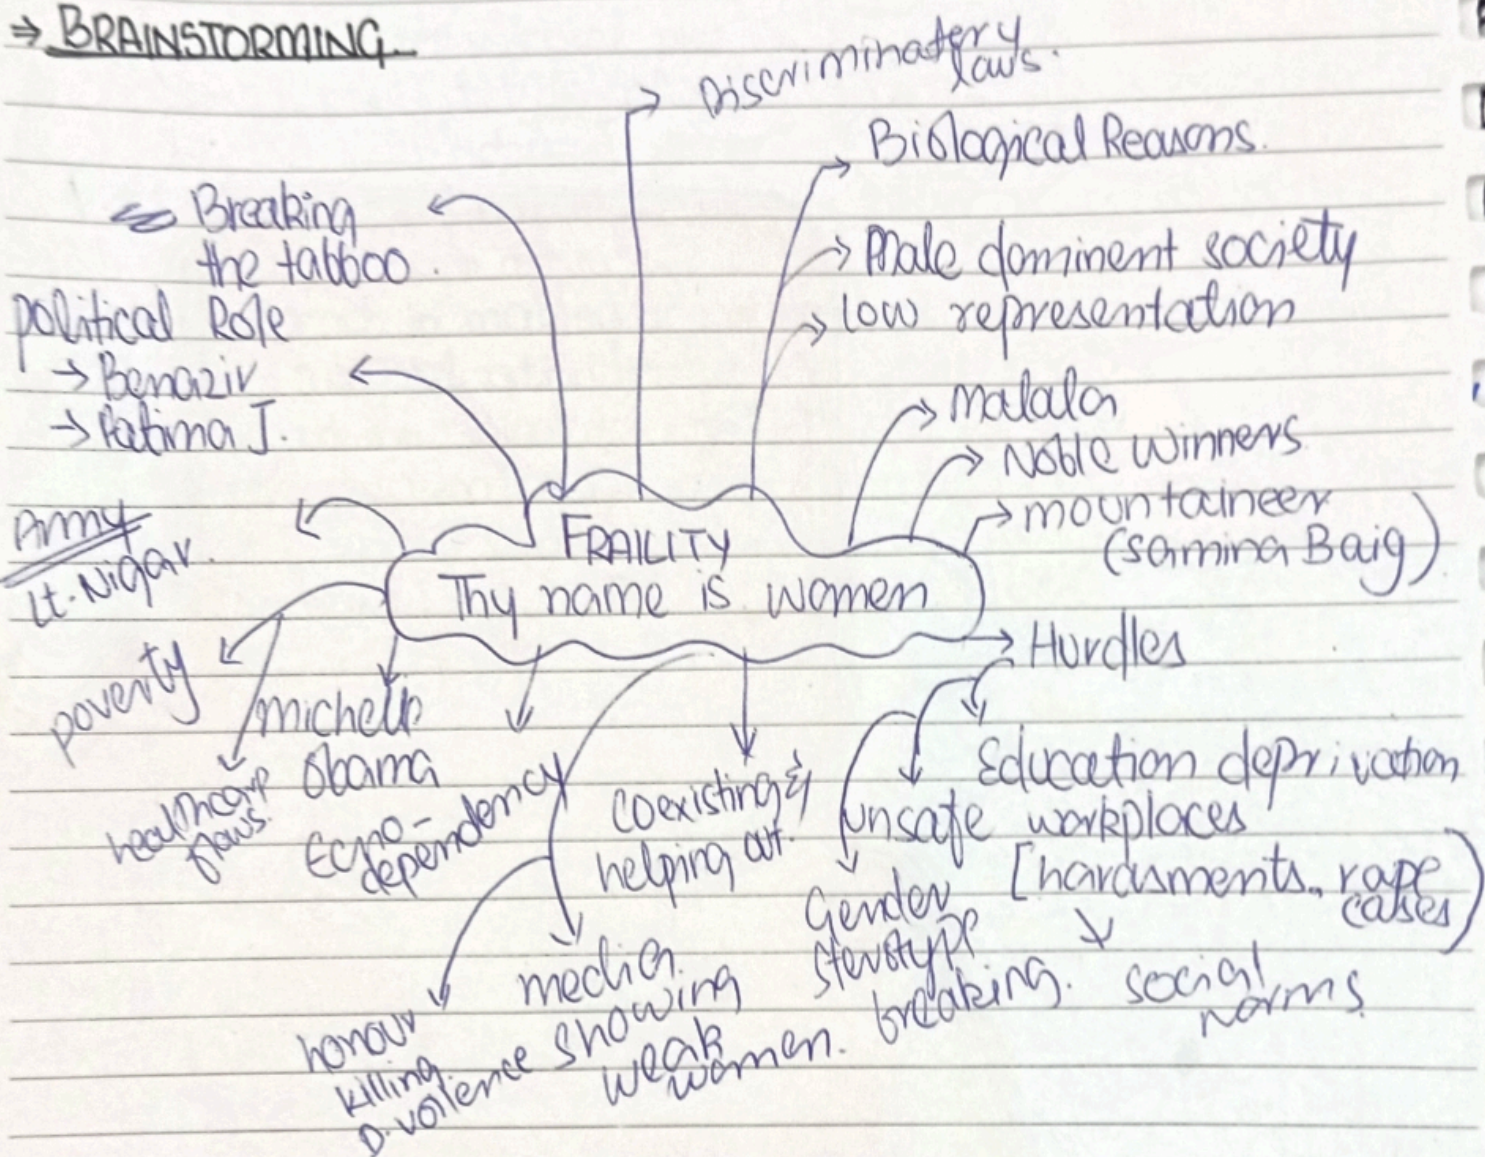 ⇒ BRAINSTORMING
Discriminatery
laws.
Biological Reasons.
Breaking
the tabboo.
Male dominent society
low representation
political Role
→ Benazir
→ Fatima J.
Malala
Noble Winners
mountaineer
(Samina Baig)
Army
Lt. Nigar.
FRAILITY
Thy name is women
Hurdles
poverty
healthcare
flaws.
Michelle
Obama
Econo-
dependency
Coexisting &
helping out.
Education deprivation
unsafe workplaces
[harasments, rape
cases)
Gender
sterotype
breaking.
social
norms
media
showing
weak
women.
honour
killing.
D. voilence